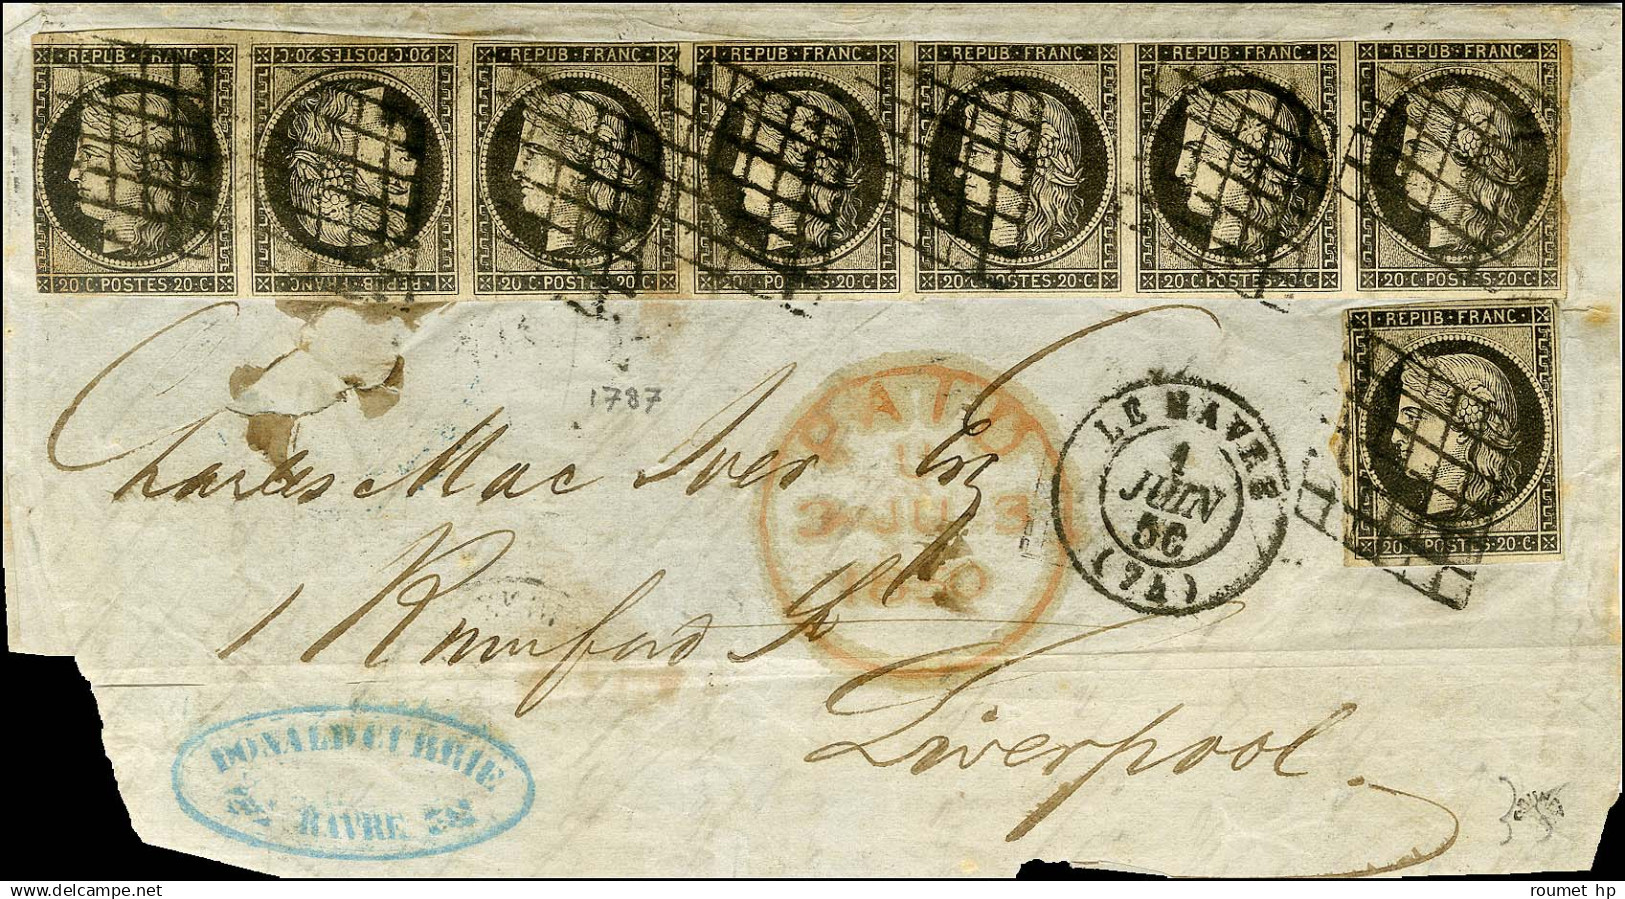 REPUB·FRANC REPUB·FRANC REPUB·FRANC REPUB·FRANC REPUB·FRANC REPUB·FRANC REPUB·FRANC
20·C·POSTES·20·C· 20·C·POSTES·20·C· 20·C·POSTES·20·C· 20·C·POSTES·20·C· 20·C·POSTES·20·C· 20·C·POSTES·20·C· 20·C·POSTES·20·C·
REPUB·FRANC
20·C·POSTES·20·C·
1787
PAID
3 JU 3
1850
LE HAVRE
1
JUIN
50
(74)
Charles Mac Iver Esq
1 Rumford St
Liverpool.
DONALD CURRIE
HAVRE
www.delcampe.net
roumet hp